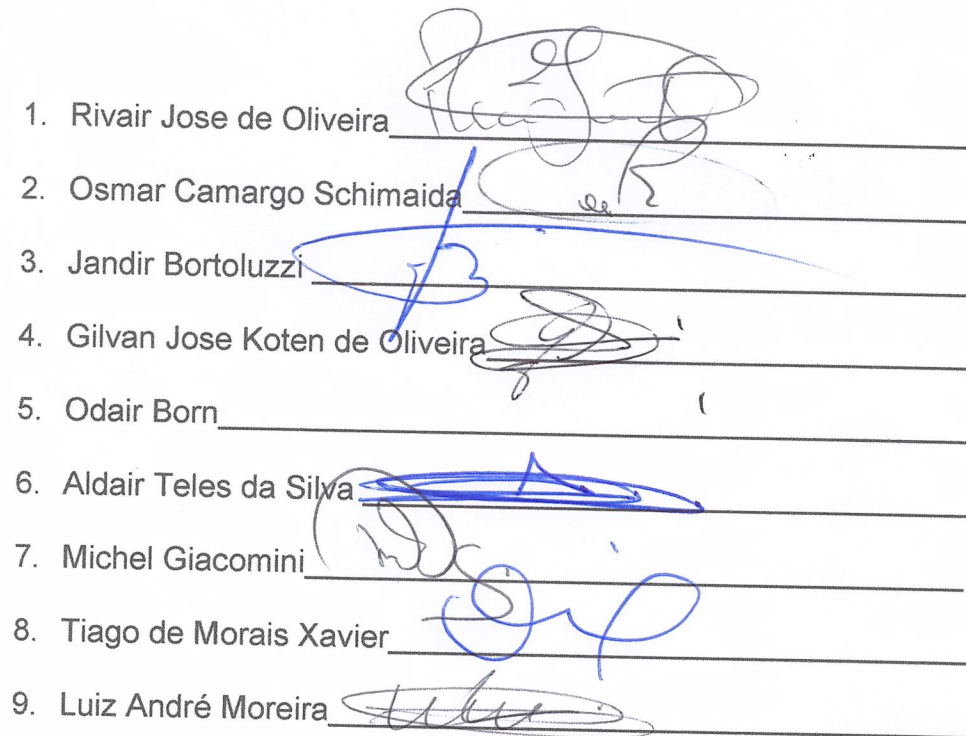 1. Rivair Jose de Oliveira
2. Osmar Camargo Schimaida
3. Jandir Bortoluzzi
4. Gilvan Jose Koten de Oliveira
5. Odair Born
6. Aldair Teles da Silva
7. Michel Giacomini
8. Tiago de Morais Xavier
9. Luiz André Moreira